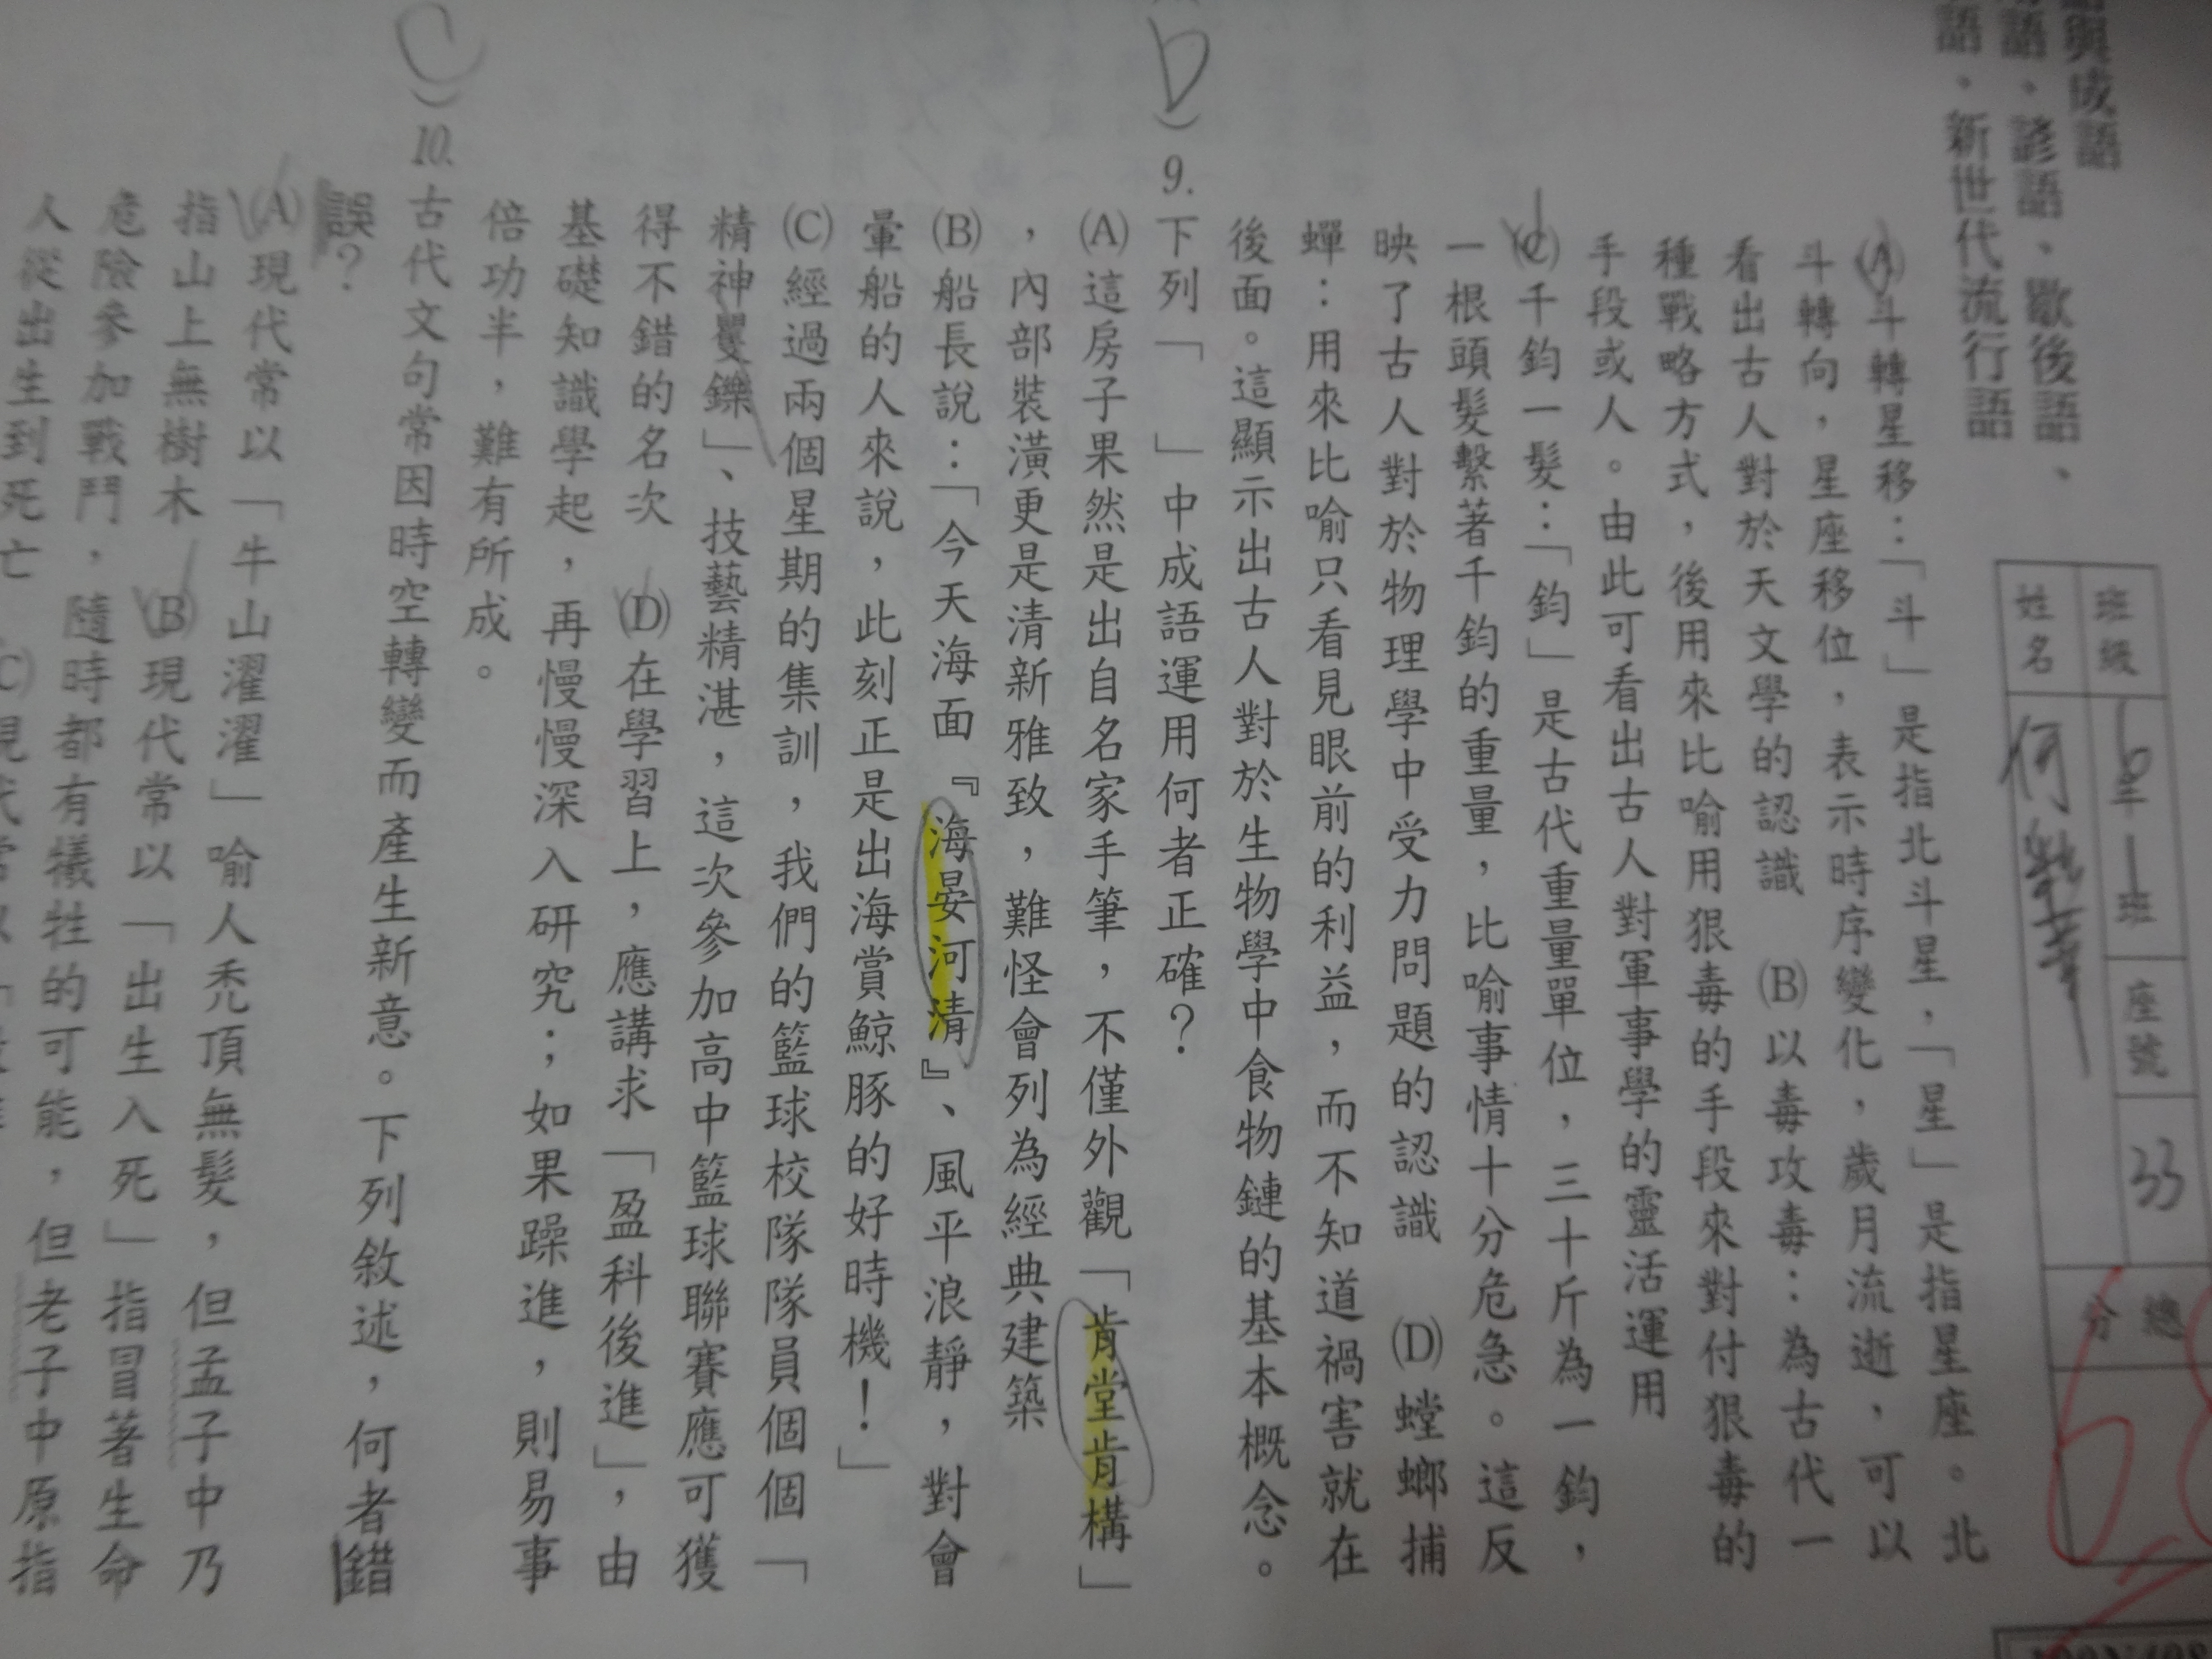 語與成語
語、諺語、歇後語、
語、新世代流行語
班級
6年1班
座號
33
姓名
何
總分
(A)斗轉星移：「斗」是指北斗星，「星」是指星座。北
斗轉向，星座移位，表示時序變化，歲月流逝，可以
看出古人對於天文學的認識 (B)以毒攻毒：為古代一
種戰略方式，後用來比喻用狠毒的手段來對付狠毒的
手段或人。由此可看出古人對軍事學的靈活運用
(C)千鈞一髮：「鈞」是古代重量單位，三十斤為一鈞，
一根頭髮繫著千鈞的重量，比喻事情十分危急。這反
映了古人對於物理學中受力問題的認識 (D)螳螂捕
蟬：用來比喻只看見眼前的利益，而不知道禍害就在
後面。這顯示出古人對於生物學中食物鏈的基本概念。
D）9.下列「 」中成語運用何者正確？
(A)這房子果然是出自名家手筆，不僅外觀「肯堂肯構」
，內部裝潢更是清新雅致，難怪會列為經典建築
(B)船長說：「今天海面『海晏河清』、風平浪靜，對會
暈船的人來說，此刻正是出海賞鯨豚的好時機！」
(C)經過兩個星期的集訓，我們的籃球校隊隊員個個「
精神矍鑠」、技藝精湛，這次參加高中籃球聯賽應可獲
得不錯的名次 (D)在學習上，應講求「盈科後進」，由
基礎知識學起，再慢慢深入研究；如果躁進，則易事
倍功半，難有所成。
C）10.古代文句常因時空轉變而產生新意。下列敘述，何者錯
誤？
(A)現代常以「牛山濯濯」喻人禿頂無髮，但孟子中乃
指山上無樹木 (B)現代常以「出生入死」指冒著生命
危險參加戰鬥，隨時都有犧牲的可能，但老子中原指
人從出生到死亡 (C)現代常以「